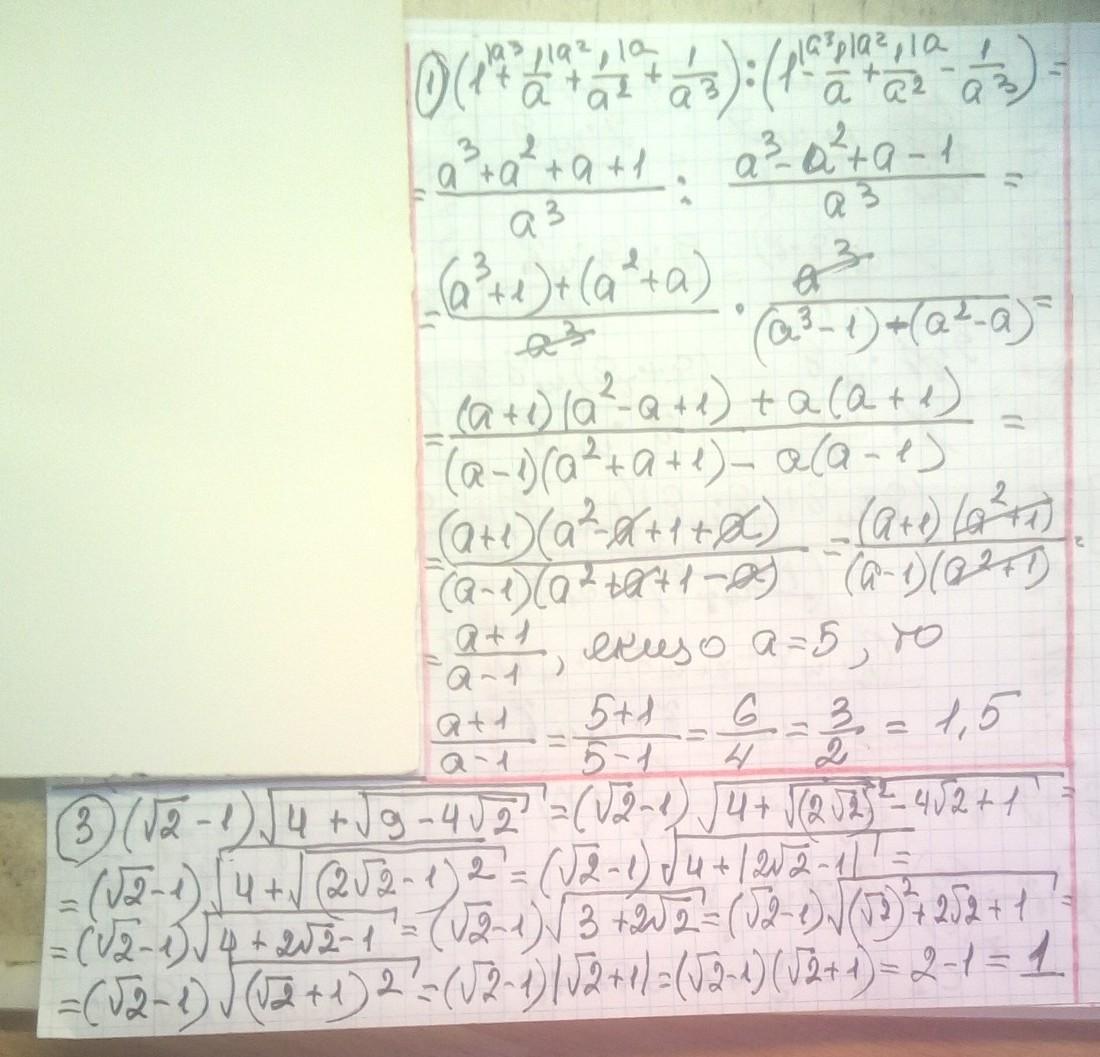 ① (1 + 1/a + 1/a² + 1/a³) : (1 - 1/a + 1/a² - 1/a³) =
= (a³ + a² + a + 1)/a³ : (a³ - a² + a - 1)/a³ =
= ((a³ + 1) + (a² + a))/a³ · a³/((a³ - 1) - (a² - a)) =
= ((a + 1)(a² - a + 1) + a(a + 1))/((a - 1)(a² + a + 1) - a(a - 1)) =
= ((a+1)(a² - a + 1 + a))/((a-1)(a² + a + 1 - a)) = ((a+1)(a²+1))/((a-1)(a²+1)) =
= (a+1)/(a-1), якщо a = 5, то
(a+1)/(a-1) = (5+1)/(5-1) = 6/4 = 3/2 = 1,5
③ (√2 - 1)√(4 + √(9 - 4√2)) = (√2 - 1)√(4 + √((2√2)² - 4√2 + 1)) =
= (√2 - 1)√(4 + √((2√2 - 1)²)) = (√2 - 1)√(4 + |2√2 - 1|) =
= (√2 - 1)√(4 + 2√2 - 1) = (√2 - 1)√(3 + 2√2) = (√2 - 1)√((√2)² + 2√2 + 1) =
= (√2 - 1)√((√2 + 1)²) = (√2 - 1)|√2 + 1| = (√2 - 1)(√2 + 1) = 2 - 1 = 1